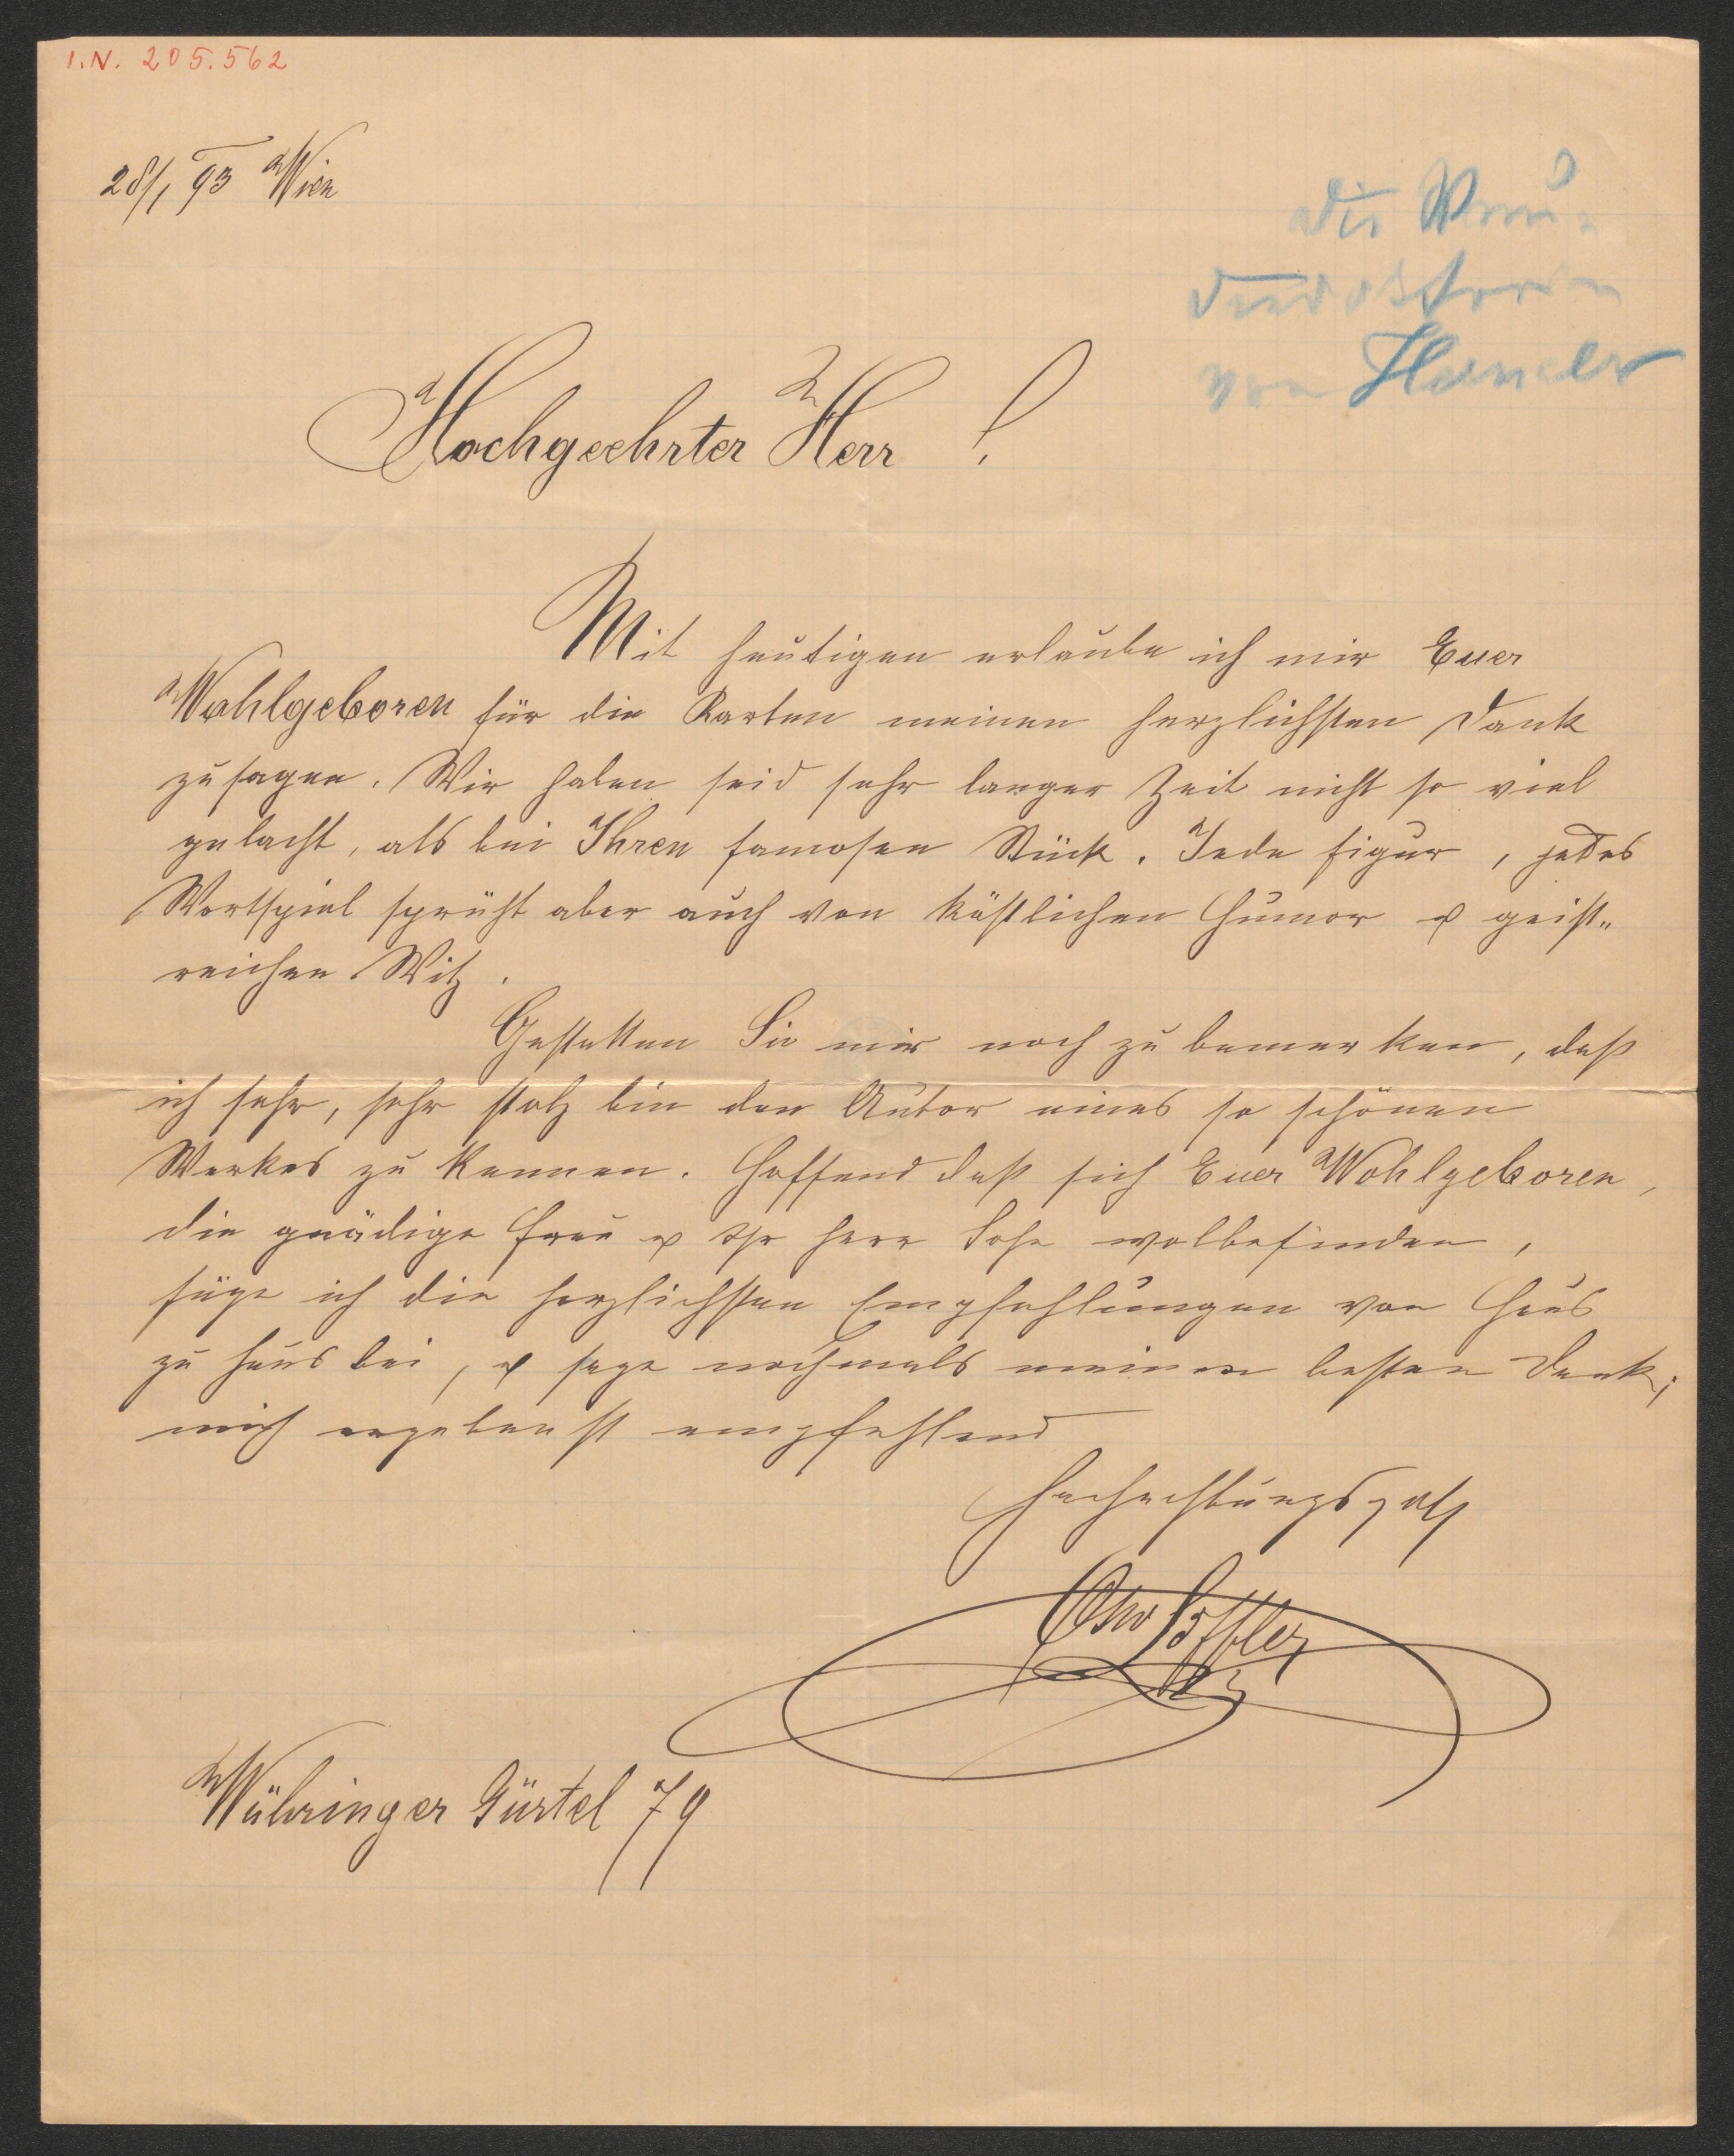 I.N. 205.562
28/1 93 Wien
Die
von
Hochgeehrter Herr !
Mit heutigen erlaube ich mir Euer
Wohlgeboren für die Karten meinen herzlichsten Dank
zu sagen. Wir haben seid sehr langer Zeit nicht so viel
gelacht, als bei Ihren famosen Stück. Jede Figur, jedes
Wortspiel sprüht aber auch von köstlichen Humor u geist„
reichen Witz.
Gestatten Sie mir noch zu bemerken, daß
ich sehr, sehr stolz bin den Autor eines so schönen
Werkes zu kennen. Hoffend daß sich Euer Wohlgeboren,
die gnädige Frau u Ihr Herr Sohn wolbefinden,
füge ich die herzlichsten Empfehlungen von Haus
zu Haus bei, u sage nochmals meinen besten Dank;
mich ergebenst empfehlend
Hochachtungsvoll
Otto Löffler
Währinger Gürtel 79